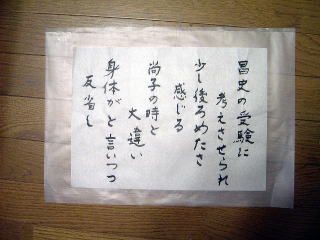 昌史の受験に
考えさせられ
少し後ろめたさ
感じる
尚子の時と
大違い
身体がと言いつつ
反省し